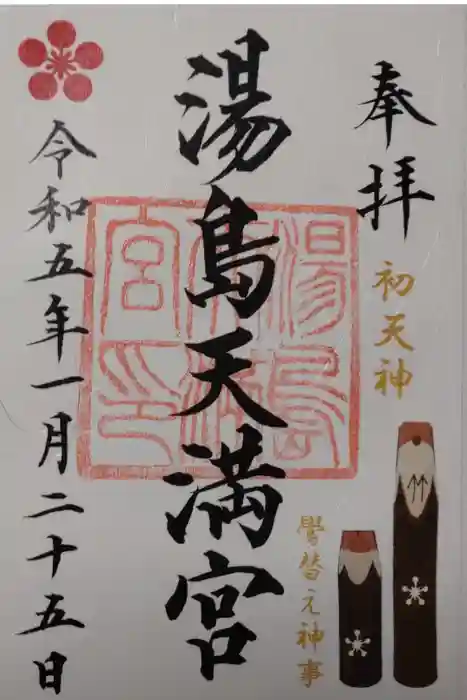 奉拝
初天神
鷽替え神事
湯島天満宮
湯島天満宮印
令和五年一月二十五日